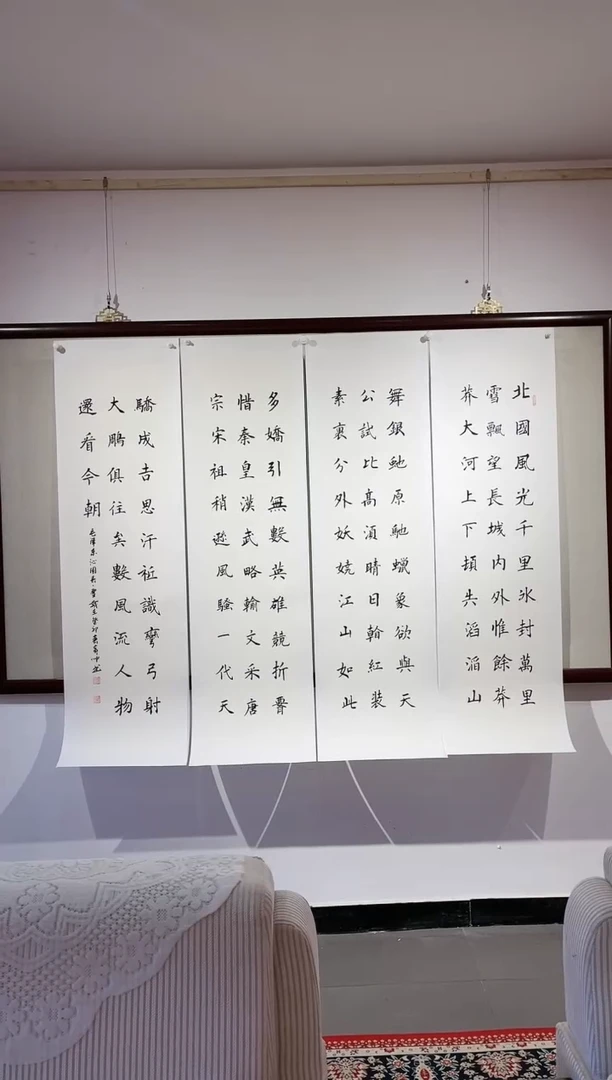 北國風光千里氷封萬里
雪飄望長城內外惟餘莽
莽大河上下頓失滔滔山
舞銀虵原馳蠟象欲與天
公試比高須晴日看紅裝
素裹分外妖嬈江山如此
多嬌引無數英雄競折腰
惜秦皇漢武略輸文采唐
宗宋祖稍遜風騷一代天
驕成吉思汗祗識彎弓射
大鵰俱往矣數風流人物
還看今朝
毛澤東沁園春雪歲在癸卯